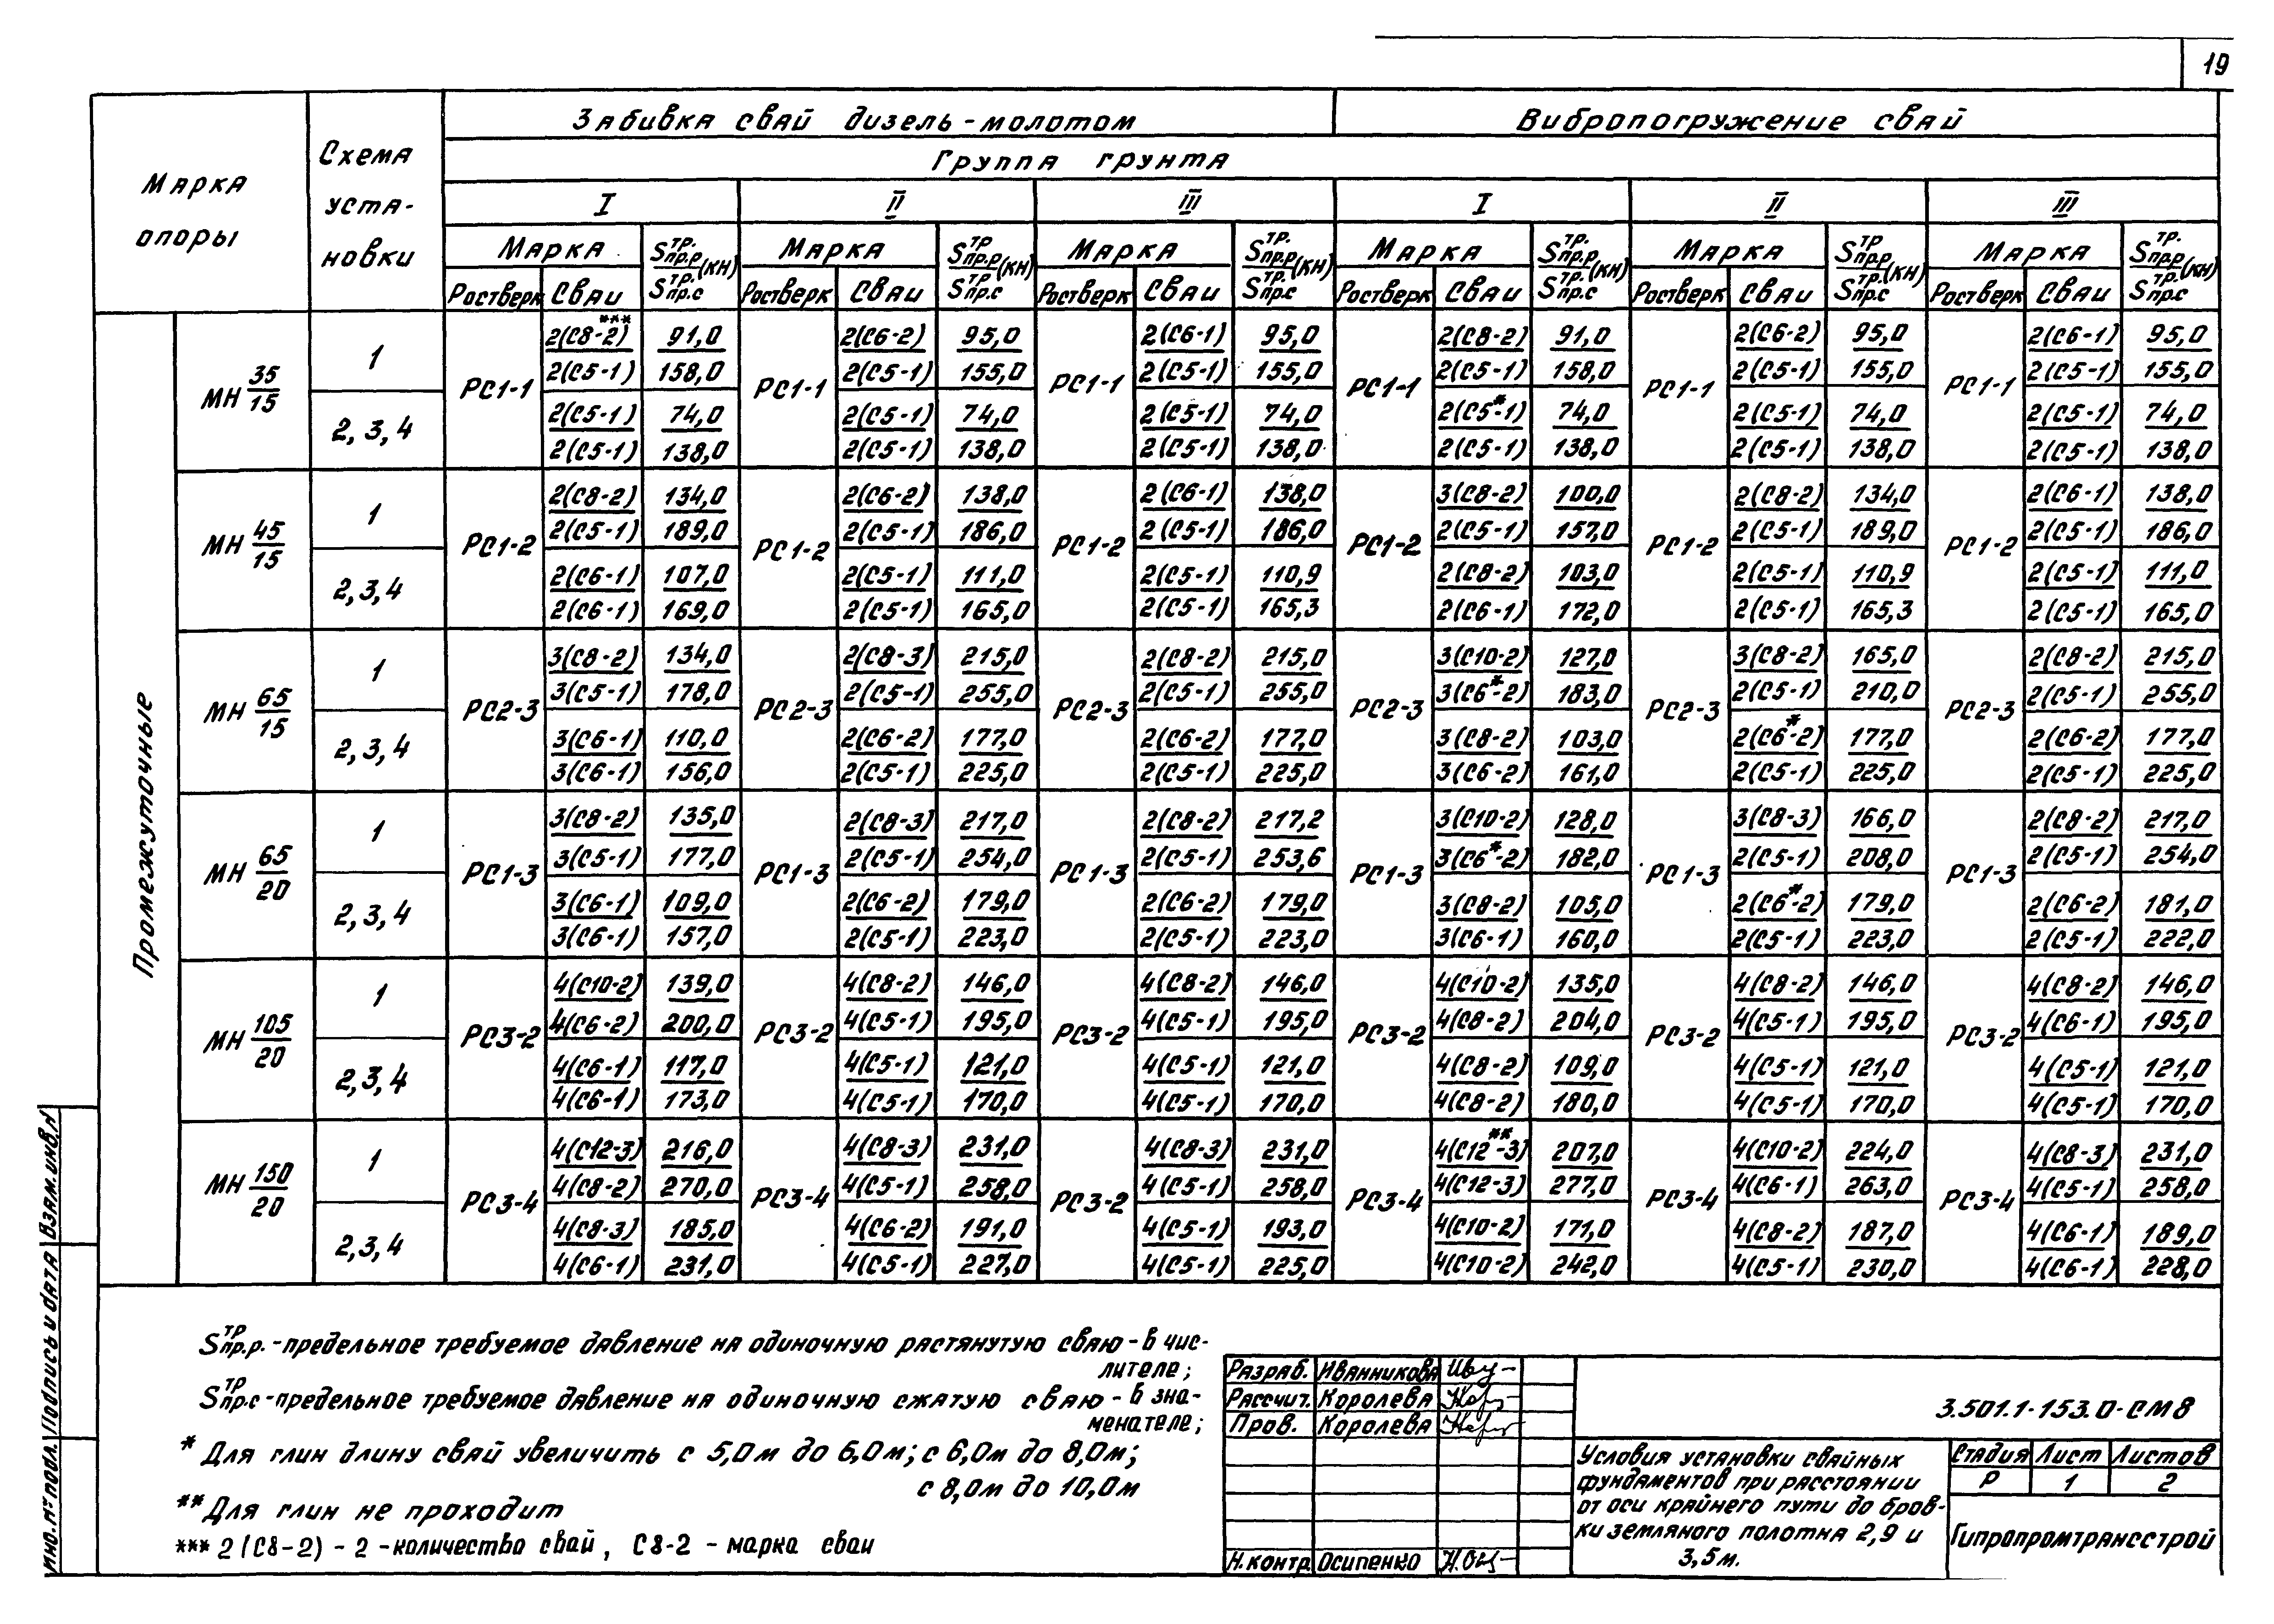 19
Марка опоры
Схема уста- новки
Забивка свай дизель-молотом
Вибропогружение свай
Группа грунта
I II III I II III
Марка Sпр.р тр. / Sпр.с тр. (кН) Марка Sпр.р тр / Sпр.с тр. (кН) Марка Sпр.р тр. / Sпр.с тр. (кН) Марка Sпр.р тр. / Sпр.с тр. (кН) Марка Sпр.р тр / Sпр.с тр. (кН) Марка Sпр.р тр. / Sпр.с тр. (кН)
Ростверк Сваи Ростверк Сваи Ростверк Сваи Ростверк Сваи Ростверк Сваи Ростверк Сваи
Промежуточные
МН 35/15 РС1-1 РС1-1 РС1-1 РС1-1 РС1-1 РС1-1
1 2(С8-2)*** 91,0 2(С6-2) 95,0 2(С6-1) 95,0 2(С8-2) 91,0 2(С6-2) 95,0 2(С6-1) 95,0
2(С5-1) 158,0 2(С5-1) 155,0 2(С5-1) 155,0 2(С5-1) 158,0 2(С5-1) 155,0 2(С5-1) 155,0
2,3,4 2(С5-1) 74,0 2(С5-1) 74,0 2(С5-1) 74,0 2(С5*-1) 74,0 2(С5-1) 74,0 2(С5-1) 74,0
2(С5-1) 138,0 2(С5-1) 138,0 2(С5-1) 138,0 2(С5-1) 138,0 2(С5-1) 138,0 2(С5-1) 138,0
МН 45/15 РС1-2 РС1-2 РС1-2 РС1-2 РС1-2 РС1-2
1 2(С8-2) 134,0 2(С6-2) 138,0 2(С6-1) 138,0 3(С8-2) 100,0 2(С8-2) 134,0 2(С6-1) 138,0
2(С5-1) 189,0 2(С5-1) 186,0 2(С5-1) 186,0 2(С5-1) 157,0 2(С5-1) 189,0 2(С5-1) 186,0
2,3,4 2(С6-1) 107,0 2(С5-1) 111,0 2(С5-1) 110,9 2(С8-2) 103,0 2(С5-1) 110,9 2(С5-1) 111,0
2(С6-1) 169,0 2(С5-1) 165,0 2(С5-1) 165,3 2(С6-1) 172,0 2(С5-1) 165,3 2(С5-1) 165,0
МН 65/15 РС2-3 РС2-3 РС2-3 РС2-3 РС2-3 РС2-3
1 3(С8-2) 134,0 2(С8-3) 215,0 2(С8-2) 215,0 3(С10-2) 127,0 3(С8-2) 165,0 2(С8-2) 215,0
3(С5-1) 178,0 2(С5-1) 255,0 2(С5-1) 255,0 3(С6*-2) 183,0 2(С5-1) 210,0 2(С5-1) 255,0
2,3,4 3(С6-1) 110,0 2(С6-2) 177,0 2(С6-2) 177,0 3(С8-2) 103,0 2(С6*-2) 177,0 2(С6-2) 177,0
3(С6-1) 156,0 2(С5-1) 225,0 2(С5-1) 225,0 3(С6-2) 161,0 2(С5-1) 225,0 2(С5-1) 225,0
МН 65/20 РС1-3 РС1-3 РС1-3 РС1-3 РС1-3 РС1-3
1 3(С8-2) 135,0 2(С8-3) 217,0 2(С8-2) 217,2 3(С10-2) 128,0 3(С8-3) 166,0 2(С8-2) 217,0
3(С5-1) 177,0 2(С5-1) 254,0 2(С5-1) 253,6 3(С6*-2) 182,0 2(С5-1) 208,0 2(С5-1) 254,0
2,3,4 3(С6-1) 109,0 2(С6-2) 179,0 2(С6-2) 179,0 3(С8-2) 105,0 2(С6*-2) 179,0 2(С6-2) 181,0
3(С6-1) 157,0 2(С5-1) 223,0 2(С5-1) 223,0 3(С6-1) 160,0 2(С5-1) 223,0 2(С5-1) 222,0
МН 105/20 РС3-2 РС3-2 РС3-2 РС3-2 РС3-2 РС3-2
1 4(С10-2) 139,0 4(С8-2) 146,0 4(С8-2) 146,0 4(С10-2) 135,0 4(С8-2) 146,0 4(С8-2) 146,0
4(С6-2) 200,0 4(С5-1) 195,0 4(С5-1) 195,0 4(С8-2) 204,0 4(С5-1) 195,0 4(С6-1) 195,0
2,3,4 4(С6-1) 117,0 4(С5-1) 121,0 4(С5-1) 121,0 4(С8-2) 109,0 4(С5-1) 121,0 4(С5-1) 121,0
4(С6-1) 173,0 4(С5-1) 170,0 4(С5-1) 170,0 4(С8-2) 180,0 4(С5-1) 170,0 4(С5-1) 170,0
МН 150/20 РС3-4 РС3-4 РС3-2 РС3-4 РС3-4 РС3-4
1 4(С12-3) 216,0 4(С8-3) 231,0 4(С8-3) 231,0 4(С12**-3) 207,0 4(С10-2) 224,0 4(С8-3) 231,0
4(С8-2) 270,0 4(С5-1) 258,0 4(С5-1) 258,0 4(С12-3) 277,0 4(С6-1) 263,0 4(С5-1) 258,0
2,3,4 4(С8-3) 185,0 4(С6-2) 191,0 4(С5-1) 193,0 4(С10-2) 171,0 4(С8-2) 187,0 4(С6-1) 189,0
4(С6-1) 231,0 4(С5-1) 227,0 4(С5-1) 225,0 4(С10-2) 242,0 4(С5-1) 230,0 4(С6-1) 228,0
Sпр.р. тр - предельное требуемое давление на одиночную растянутую сваю - в чис-
лителе;
Sпр.с тр - предельное требуемое давление на одиночную сжатую сваю - в зна-
менателе;
* Для глин длину свай увеличить с 5,0м до 6,0м; с 6,0м до 8,0м;
с 8,0м до 10,0м
** Для глин не проходит
*** 2(С8-2) - 2 - количество свай, С8-2 - марка сваи
Разраб. Иванникова
Рассчит. Королева
Пров. Королева
Н.контр. Осипенко
3.501.1-153.0-СМ8
Условия установки свайных
фундаментов при расстоянии
от оси крайнего пути до бров-
ки земляного полотна 2,9 и
3,5м.
Стадия Лист Листов
Р 1 2
Гипропромтрансстрой
Инв.№ подл. Подпись и дата Взам.инв.№